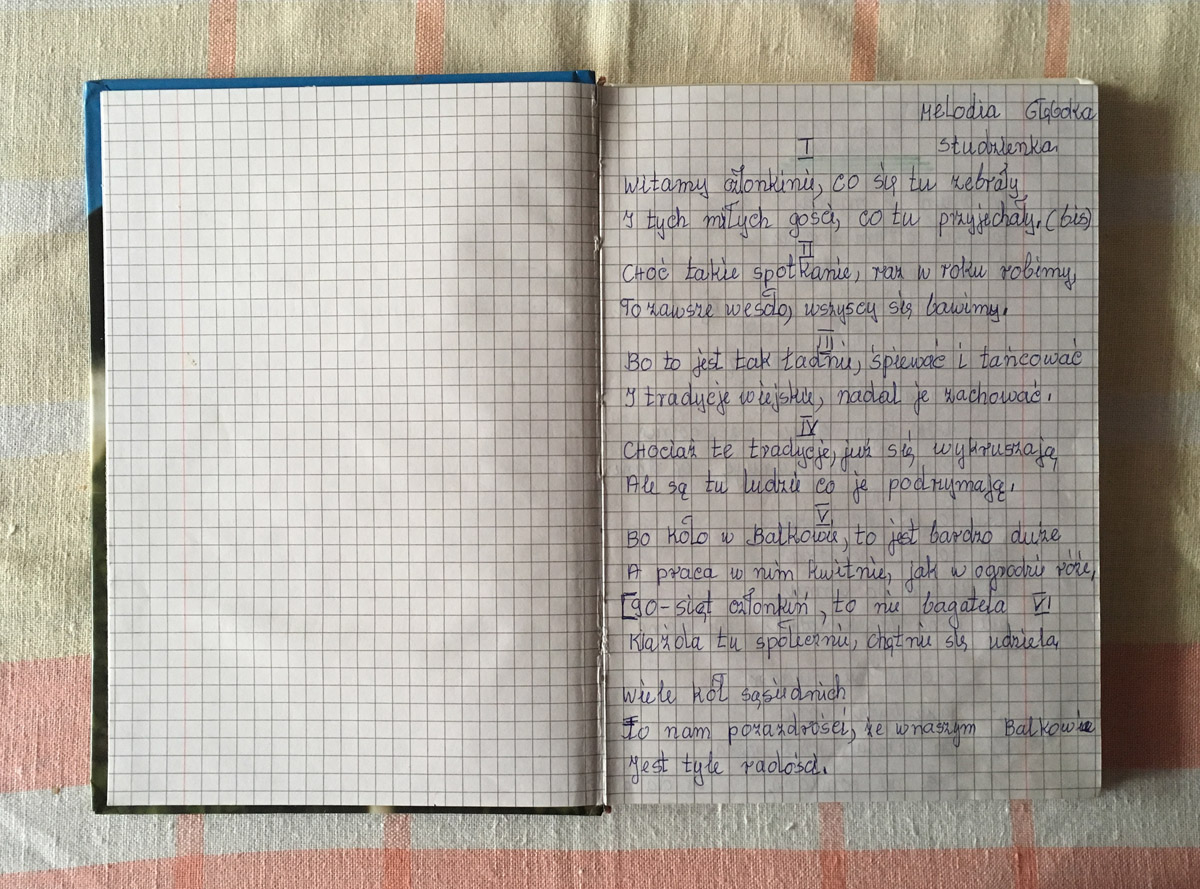 Melodia Głęboka
studzienka.
I
Witamy członkinie, co się tu zebrały
I tych miłych gości, co tu przyjechały. (bis)
II
Choć takie spotkanie, raz w roku robimy,
To zawsze wesoło, wszyscy się bawimy.
III
Bo to jest tak ładnie, śpiewać i tańcować
I tradycje wiejskie, nadal je zachować.
IV
Chociaż te tradycje, już się wykruszają
Ale są tu ludzie co je podrzymają.
V
Bo koło w Balkowie, to jest bardzo duże
A praca w nim kwitnie, jak w ogrodzie róże,
[90-siąt członkiń, to nie bagatela VI
Każda tu społecznie, chętnie się udziela
Wiele kół sąsiednich
To nam pozazdrości, że w naszym Balkowie
Jest tyle radości.